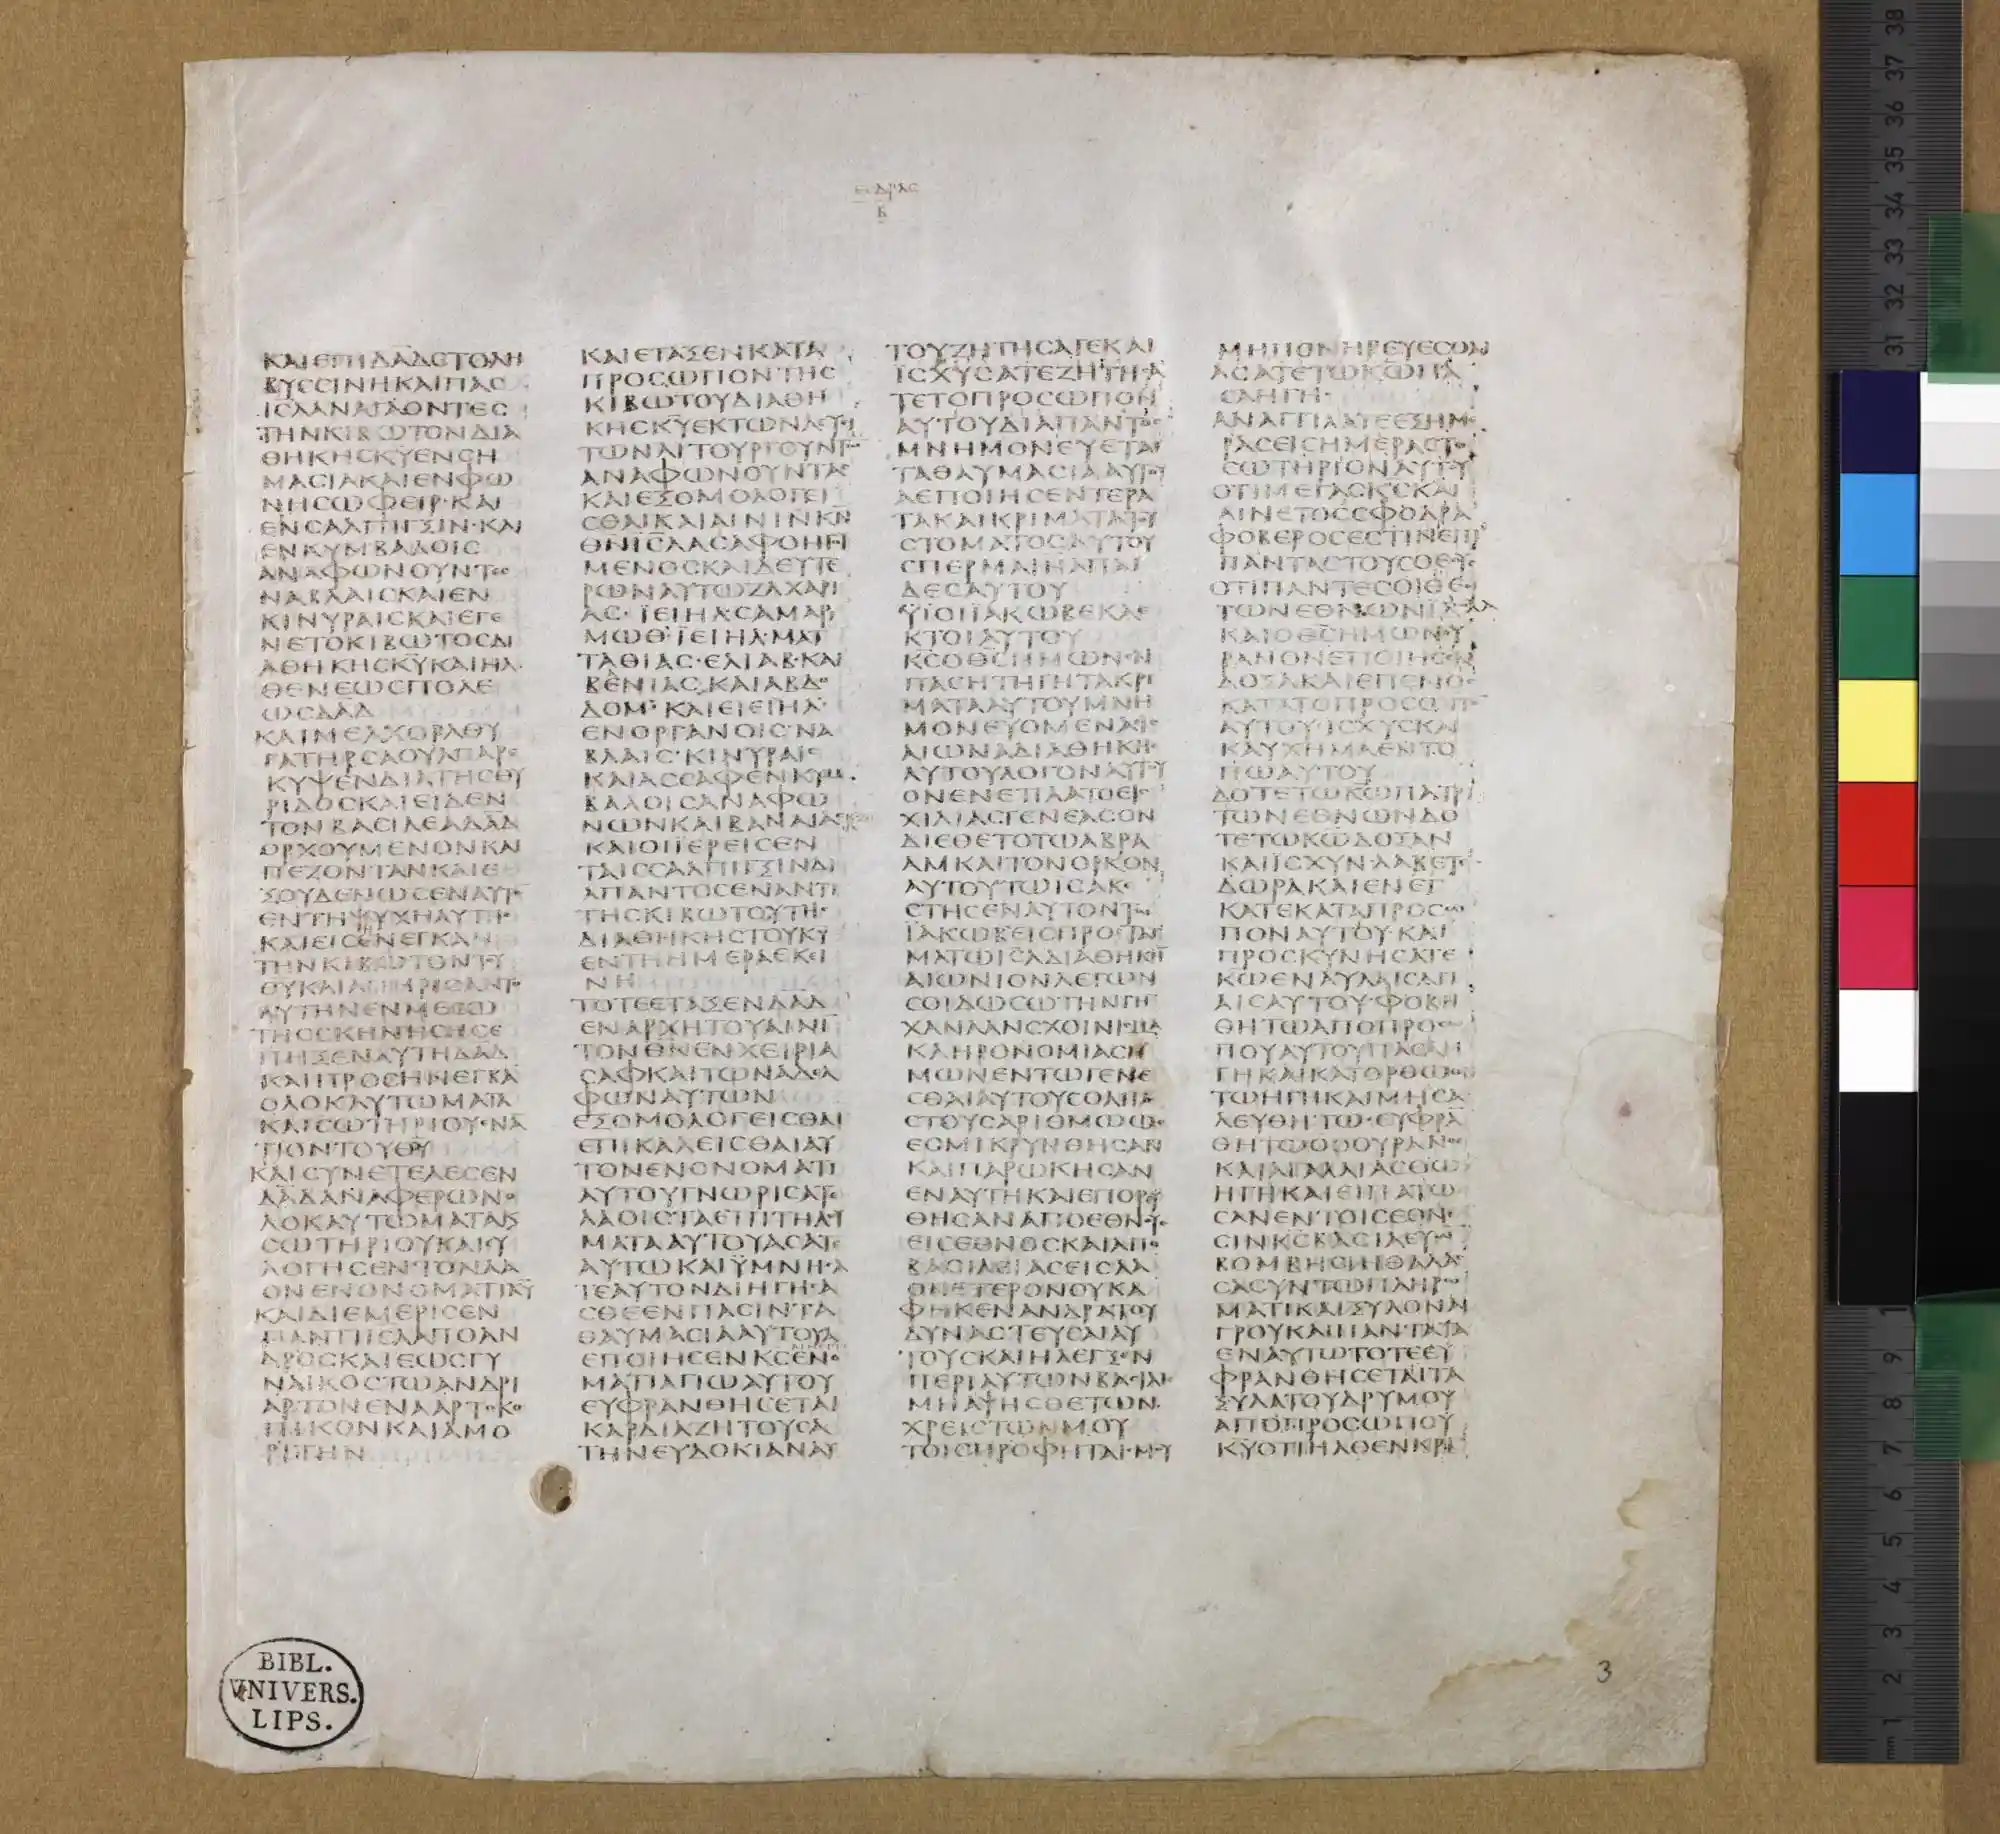 ΕΣΔΡΑС
Β
ΚΑΙ ΕΠΙ ΔΑΔ СΤΟΛΗ
ΒΥССΙΝΗ ΚΑΙ ΠΑС
ΙСΛ ΑΝΑΓΑΓΟΝΤΕС
ΤΗΝ ΚΙΒΩΤΟΝ ΔΙΑ
ΘΗΚΗС ΚΥ ΕΝ СΗ
ΜΑСΙΑ ΚΑΙ ΕΝ ΦΩ
ΝΗ СΩΦΕΙΡ· ΚΑΙ
ΕΝ СΑΛΠΙΓΞΙΝ· ΚΑΙ
ΕΝ ΚΥΜΒΑΛΟΙС
ΑΝΑΦΩΝΟΥΝΤΕС
ΝΑΒΛΑΙС ΚΑΙ ΕΝ
ΚΙΝΥΡΑΙС ΚΑΙ ΕΓΕ
ΝΕΤΟ ΚΙΒΩΤΟС ΔΙ
ΑΘΗΚΗС ΚΥ ΚΑΙ ΗΛ
ΘΕΝ ΕΩС ΠΟΛΕ
ΩС ΔΑΔ
ΚΑΙ ΜΕΛΧΟΛ ΘΥ
ΓΑΤΗΡ СΑΟΥΛ ΠΑΡΕ
ΚΥΨΕΝ ΔΙΑ ΤΗС ΘΥ
ΡΙΔΟС ΚΑΙ ΕΙΔΕΝ
ΤΟΝ ΒΑСΙΛΕΑ ΔΑΔ
ΟΡΧΟΥΜΕΝΟΝ ΚΑΙ
ΠΕΖΟΝΤΑ Ν ΚΑΙ Ε
ΞΟΥΔΕΝΩСΕΝ ΑΥΤΟ
ΕΝ ΤΗ ΨΥΧΗ ΑΥΤΗС
ΚΑΙ ΕΙСΕΝΕΓΚΑΝ
ΤΗΝ ΚΙΒΩΤΟΝ ΤΟΥ
ΘΥ ΚΑΙ ΑΠΗΡΙСΑΝΤΟ
ΑΥΤΗΝ ΕΝ ΜΕСΩ
ΤΗС СΚΗΝΗС ΗС Ε
ΠΗΞΕΝ ΑΥΤΗ ΔΑΔ
ΚΑΙ ΠΡΟСΗΝΕΓΚΑ
ΟΛΟΚΑΥΤΩΜΑΤΑ
ΚΑΙ СΩΤΗΡΙΟΥ ΕΝΑ
ΤΙΟΝ ΤΟΥ ΘΥ
ΚΑΙ СΥΝΕΤΕΛΕСΕΝ
ΔΑΔ ΑΝΑΦΕΡΩΝ Ο
ΛΟΚΑΥΤΩΜΑΤΑ Κ
СΩΤΗΡΙΟΥ ΚΑΙ ΕΥ
ΛΟΓΗСΕΝ ΤΟΝ ΛΑ
ΟΝ ΕΝ ΟΝΟΜΑΤΙ ΚΥ
ΚΑΙ ΔΙΕΜΕΡΙСΕΝ
ΠΑΝΤΙ ΙСΛ ΑΠΟ ΑΝ
ΔΡΟС ΚΑΙ ΕΩС ΓΥ
ΝΑΙΚΟС ΤΩ ΑΝΔΡΙ
ΑΡΤΟΝ ΕΝΑ ΑΡΤΟΚΟ
ΠΙΚΟΝ ΚΑΙ ΑΜΟ
ΡΙΤΗΝ
ΚΑΙ ΕΤΑΞΕΝ ΚΑΤΑ
ΠΡΟСΩΠΟΝ ΤΗС
ΚΙΒΩΤΟΥ ΔΙΑΘΗ
ΚΗС ΚΥ ΕΚ ΤΩΝ ΛΕΥΙ
ΤΩΝ ΛΙΤΟΥΡΓΟΥΝΤΑС
ΑΝΑΦΩΝΟΥΝΤΑС
ΚΑΙ ΕΞΟΜΟΛΟΓΕΙ
СΘΑΙ ΚΑΙ ΑΙΝΙΝ ΚΝ
ΘΝ ΙСΛ ΑСΑΦ Ο ΗΓΙ
ΜΕΝΟС ΚΑΙ ΔΕΥΤΕ
ΡΩΝ ΑΥΤΩ ΖΑΧΑΡΙ
ΑС· ΪΕΙΗΛ· СΑΜΑΡΙ
ΜΩΘ· ΪΕΙΗΛ· ΜΑΤ
ΤΑΘΙΑС· ΕΛΙΑΒ· ΚΑΙ
ΒΕΝΙΑС· ΚΑΙ ΑΒΔΟ
ΔΟΜ· ΚΑΙ ΕΙΕΙΗΛ·
ΕΝ ΟΡΓΑΝΟΙС ΝΑ
ΒΛΑΙС· ΚΙΝΥΡΑΙС
ΚΑΙ ΑССΑΦ ΕΝ ΚΥΜ
ΒΑΛΟΙС ΑΝΑΦΩ
ΝΩΝ ΚΑΙ ΒΑΝΑΙΑС
ΚΑΙ ΟΙΪΕΡΕΙС ΕΝ
ΤΑΙС СΑΛΠΙΓΞΙΝ ΔΙ
Α ΠΑΝΤΟС ΕΝΑΝΤΙ
ΤΗС ΚΙΒΩΤΟΥ ΤΗС
ΔΙΑΘΗΚΗС ΤΟΥ ΚΥ
ΕΝ ΤΗ ΗΜΕΡΑ ΕΚΕΙ
ΝΗ
ΤΟΤΕ ΕΤΑΞΕΝ ΔΑΔ
ΕΝ ΑΡΧΗ ΤΟΥ ΑΙΝΙ
ΤΟΝ ΘΝ ΕΝ ΧΕΙΡΙ Α
СΑΦ ΚΑΙ ΤΩΝ ΑΔΕΛ
ΦΩΝ ΑΥΤΩΝ
ΕΞΟΜΟΛΟΓΕΙСΘΑΙ
ΕΠΙΚΑΛΕΙСΘΑΙ ΑΥ
ΤΟΝ ΕΝ ΟΝΟΜΑΤΙ
ΑΥΤΟΥ ΓΝΩΡΙСΑΤΕ
ΛΑΟΙС ΤΑ ΕΠΙΤΗΔΕΥ
ΜΑΤΑ ΑΥΤΟΥ ΑСΑΤΕ
ΑΥΤΩ ΚΑΙ ΫΜΝΗСΑ
ΤΕ ΑΥΤΟΝ ΔΙΗΓΗСΑ
СΘΕ ΕΝ ΠΑСΙΝ ΤΑ
ΘΑΥΜΑСΙΑ ΑΥΤΟΥ Α
ΕΠΟΙΗСΕΝ ΚС ΕΝΟ
ΜΑΤΙ ΑΓΙΩ ΑΥΤΟΥ
ΕΥΦΡΑΝΘΗСΕΤΑΙ
ΚΑΡΔΙΑ ΖΗΤΟΥСΑ
ΤΗΝ ΕΥΔΟΚΙΑΝ ΑΥ
ΤΟΥ ΖΗΤΗСΑΤΕ ΚΑΙ
ΙСΧΥСΑΤΕ ΖΗΤΗСΑ
ΤΕ ΤΟ ΠΡΟСΩΠΟΝ
ΑΥΤΟΥ ΔΙΑ ΠΑΝΤΟС
ΜΝΗΜΟΝΕΥΕΤΑΙ
ΤΑ ΘΑΥΜΑСΙΑ ΑΥΤΟΥ
Α ΕΠΟΙΗСΕΝ ΤΕΡΑ
ΤΑ ΚΑΙ ΚΡΙΜΑΤΑ ΤΟΥ
СΤΟΜΑΤΟС ΑΥΤΟΥ
СΠΕΡΜΑ Ι ΠΑΙ
ΔΕС ΑΥΤΟΥ
ΫΙΟΙ ΪΑΚΩΒ ΕΚΛΕ
ΚΤΟΙ ΑΥΤΟΥ
ΚС Ο ΘС ΗΜΩΝ ΕΝ
ΠΑСΗ ΤΗ ΓΗ ΤΑ ΚΡΙ
ΜΑΤΑ ΑΥΤΟΥ ΜΝΗ
ΜΟΝΕΥΟΜΕΝ ΑΙС
ΑΙΩΝΑ ΔΙΑΘΗΚΗС
ΑΥΤΟΥ ΛΟΓΟΝ ΑΥΤΟΥ
ΟΝ ΕΝΕΤΙΛΑΤΟ ΕΙС
ΧΙΛΙΑС ΓΕΝΕΑС ΟΝ
ΔΙΕΘΕΤΟ ΤΩ ΑΒΡΑ
ΑΜ ΚΑΙ ΤΟΝ ΟΡΚΟΝ
ΑΥΤΟΥ ΤΩ ΙСΑΚ·
СΤΗСΕΝ ΑΥΤΟΝ ΤΩ
ΪΑΚΩΒ ΕΙС ΠΡΟСΤΑΓ
ΜΑ ΤΩ ΙСΛ ΔΙΑΘΗΚΗ
ΑΙΩΝΙΟΝ ΛΕΓΩΝ
СΟΙ ΔΩСΩ ΤΗΝ ΓΗ
ΧΑΝΑΑΝ СΧΟΙΝΙСΜΑ
ΚΛΗΡΟΝΟΜΙΑС Η
ΜΩΝ ΕΝ ΤΩ ΓΕΝΕ
СΘΑΙ ΑΥΤΟΥС ΟΛΙΓΟ
СΤΟΥС ΑΡΙΘΜΩ ΩС
ΕСΜΙΚΡΥΝΘΗСΑΝ
ΚΑΙ ΠΑΡΩΚΗСΑΝ
ΕΝ ΑΥΤΗ ΚΑΙ ΕΠΟΡΕΥ
ΘΗСΑΝ ΑΠΟ ΕΘΝΟΥС
ΕΙС ΕΘΝΟС ΚΑΙ ΑΠΟ
ΒΑСΙΛΕΙΑС ΕΙС ΛΑ
ΟΝ ΕΤΕΡΟΝ ΟΥΚ Α
ΦΗΚΕΝ ΑΝΔΡΑ ΤΟΥ
ΔΥΝΑСΤΕΥСΑΙ ΑΥ
ΤΟΥС ΚΑΙ ΗΛΕΓΞΕΝ
ΠΕΡΙ ΑΥΤΩΝ ΒΑСΙΛΕΙС
ΜΗ ΑΨΗСΘΕ ΤΩΝ
ΧΡΕΙСΤΩΝ ΜΟΥ
ΤΟΙС ΠΡΟΦΗΤΑΙС ΜΟΥ
ΜΗ ΠΟΝΗΡΕΥΕСΘΑΙ
ΑСΑΤΕ ΤΩ ΚΩ ΠΑ
СΑ Η ΓΗ·
ΑΝΑΓΓΙΛΑΤΕ ΕΞ ΗΜΕ
ΡΑС ΕΙС ΗΜΕΡΑС ΤΟ
СΩΤΗΡΙΟΝ ΑΥΤΟΥ
ΟΤΙ ΜΕΓΑС ΚС ΚΑΙ
ΑΙΝΕΤΟС СΦΟΔΡΑ
ΦΟΒΕΡΟС ΕСΤΙΝ ΕΠΙ
ΠΑΝΤΑС ΤΟΥС ΘΕΟΥС
ΟΤΙ ΠΑΝΤΕС ΟΙ ΘΕΟΙ
ΤΩΝ ΕΘΝΩΝ ΙΔΩΛΑ
ΚΑΙ Ο ΘС ΗΜΩΝ ΟΥ
ΡΑΝΟΝ ΕΠΟΙΗСΕΝ
ΔΟΞΑ ΚΑΙ ΕΠΕΝΟС
ΚΑΤΑ ΤΟ ΠΡΟСΩΠΟ
ΑΥΤΟΥ· ΙСΧΥС ΚΑΙ
ΚΑΥΧΗΜΑ ΕΝ ΤΟ
ΠΩ ΑΥΤΟΥ
ΔΟΤΕ ΤΩ ΚΩ ΠΑΤΡΙΑΙ
ΤΩΝ ΕΘΝΩΝ ΔΟ
ΤΕ ΤΩ ΚΩ ΔΟΞΑΝ
ΚΑΙ ΪСΧΥΝ· ΛΑΒΕΤΕ
ΔΩΡΑ ΚΑΙ ΕΝΕΓ
ΚΑΤΕ ΚΑΤΑ ΠΡΟСΩ
ΠΟΝ ΑΥΤΟΥ· ΚΑΙ
ΠΡΟСΚΥΝΗСΑΤΕ
ΚΩ ΕΝ ΑΥΛΑΙС ΑΓΙ
ΑΙС ΑΥΤΟΥ· ΦΟΒΗ
ΘΗΤΩ ΑΠΟ ΠΡΟСΩ
ΠΟΥ ΑΥΤΟΥ ΠΑСΑ Η
ΓΗ ΚΑΙ ΚΑΤΟΡΘΩ
ΤΩ Η ΓΗ ΚΑΙ ΜΗ СΑ
ΛΕΥΘΗΤΩ· ΕΥΦΡΑ
ΘΗΤΩ Ο ΟΥΡΑΝΟС
ΚΑΙ ΑΓΑΛΛΙΑСΘΩ
Η ΓΗ ΚΑΙ ΕΙΠΑΤΩ
СΑΝ ΕΝ ΤΟΙС ΕΘΝΕ
СΙΝ ΚС ΒΑСΙΛΕΥΩΝ
ΒΟΜΒΗСΙ Η ΘΑΛΑС
СΑ СΥΝ ΤΩ ΠΛΗΡΩ
ΜΑΤΙ ΚΑΙ ΞΥΛΟΝ Α
ΓΡΟΥ ΚΑΙ ΠΑΝΤΑ ΤΑ
ΕΝ ΑΥΤΩ ΤΟΤΕ ΕΥ
ΦΡΑΝΘΗСΕΤΑΙ ΤΑ
ΞΥΛΑ ΤΟΥ ΔΡΥΜΟΥ
ΑΠΟ ΠΡΟСΩΠΟΥ
ΚΥ ΟΤΙ ΗΛΘΕΝ ΚΡΙ
BIBL.
VNIVERS.
LIPS.
3